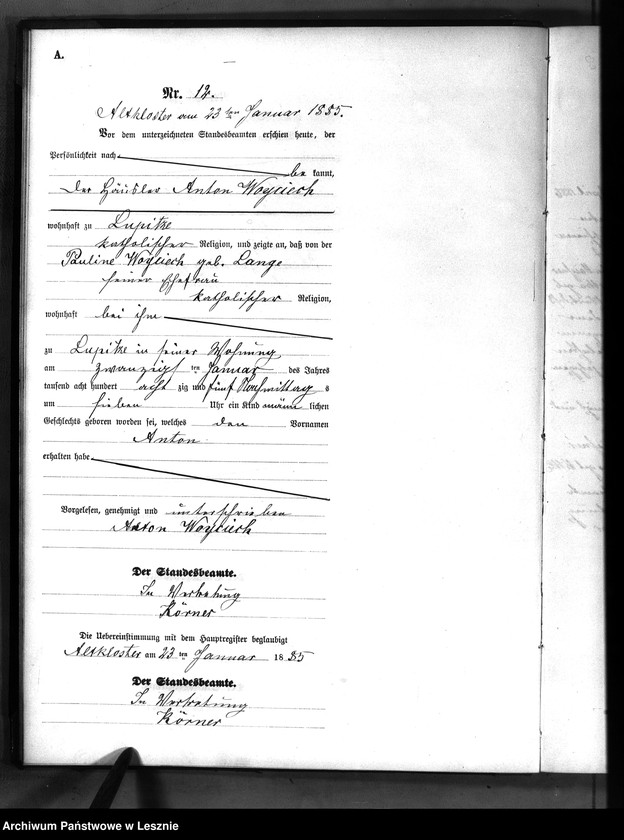 A.
Nr. 12.
Altkloster am 23 ten Januar 1885.
Vor dem unterzeichneten Standesbeamten erschien heute, der
Persönlichkeit nach
be kannt,
der Häusler Anton Woyciech
wohnhaft zu Lupitze
katholischer Religion, und zeigte an, daß von der
Pauline Woyciech geb. Lange
seiner Ehefrau
katholischer Religion,
wohnhaft bei ihm
zu Lupitze in seiner Wohnung
am zwanzigs ten Januar des Jahres
tausend acht hundert acht zig und fünf Nachmittag s
um sieben Uhr ein Kind männ lichen
Geschlechts geboren worden sei, welches den Vornamen
Anton
erhalten habe
Vorgelesen, genehmigt und unterschrieben
Anton Woyciech
Der Standesbeamte.
In Vertretung
Körner
Die Uebereinstimmung mit dem Hauptregister beglaubigt
Altkloster am 23 ten Januar 18 85
Der Standesbeamte.
In Vertretung
Körner
Archiwum Państwowe w Lesznie